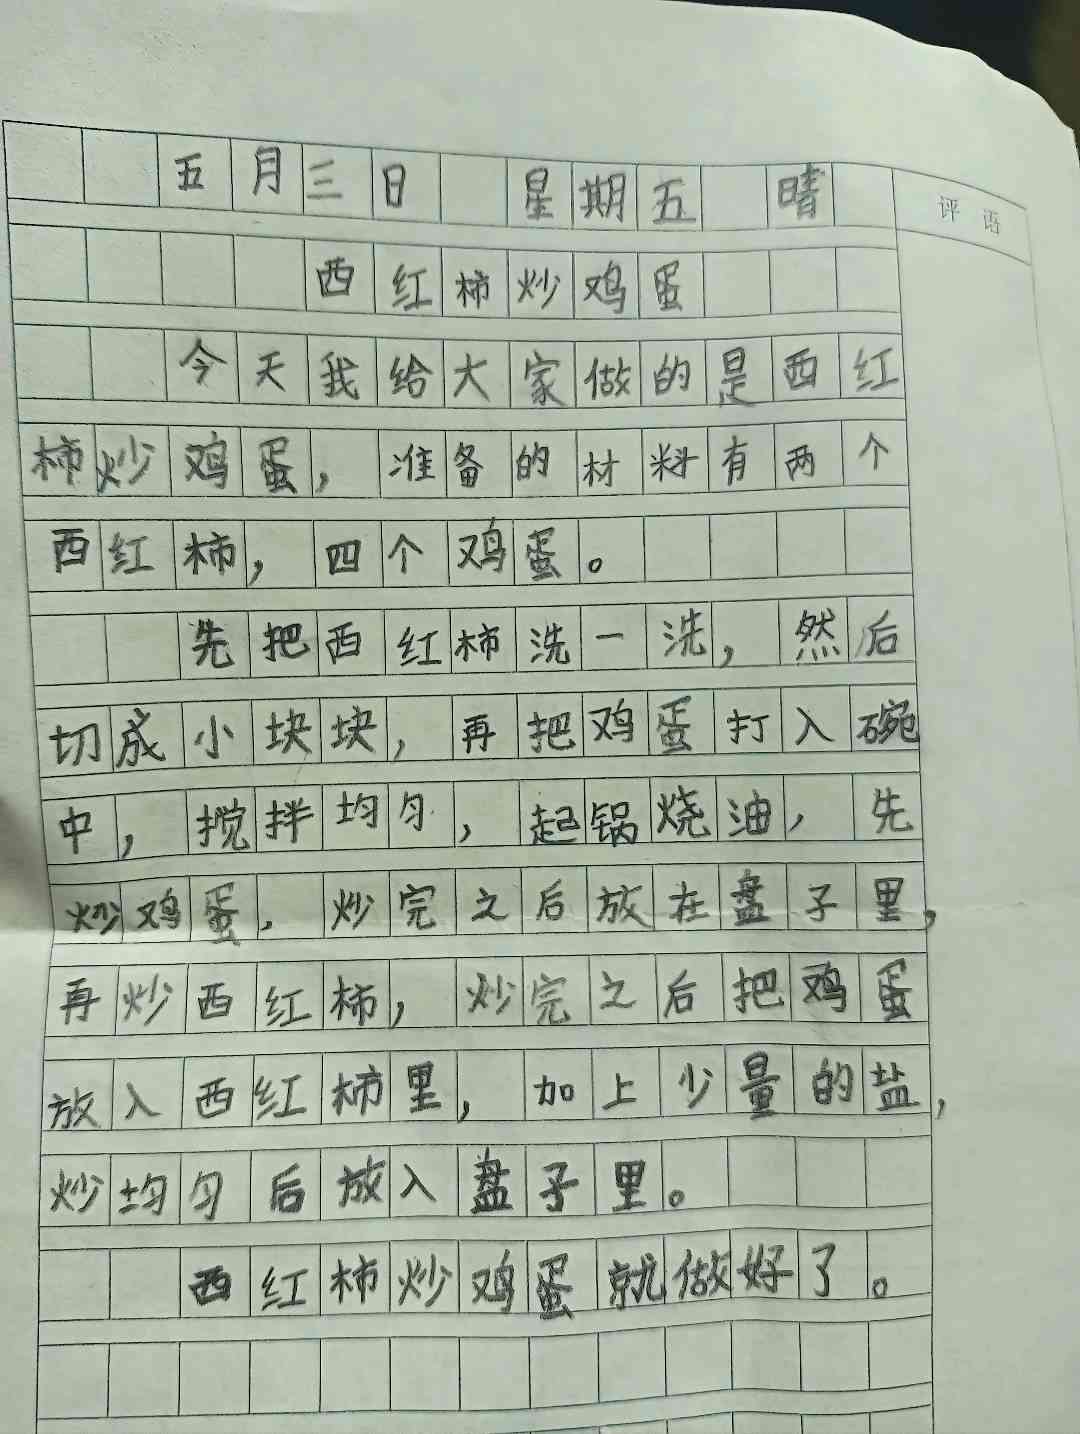 五月三日 星期五 晴
评语
西红柿炒鸡蛋
今天我给大家做的是西红
柿炒鸡蛋，准备的材料有两个
西红柿，四个鸡蛋。
先把西红柿洗一洗，然后
切成小块块，再把鸡蛋打入碗
中，搅拌均匀，起锅烧油，先
炒鸡蛋，炒完之后放在盘子里，
再炒西红柿，炒完之后把鸡蛋
放入西红柿里，加上少量的盐，
炒均匀后放入盘子里。
西红柿炒鸡蛋就做好了。